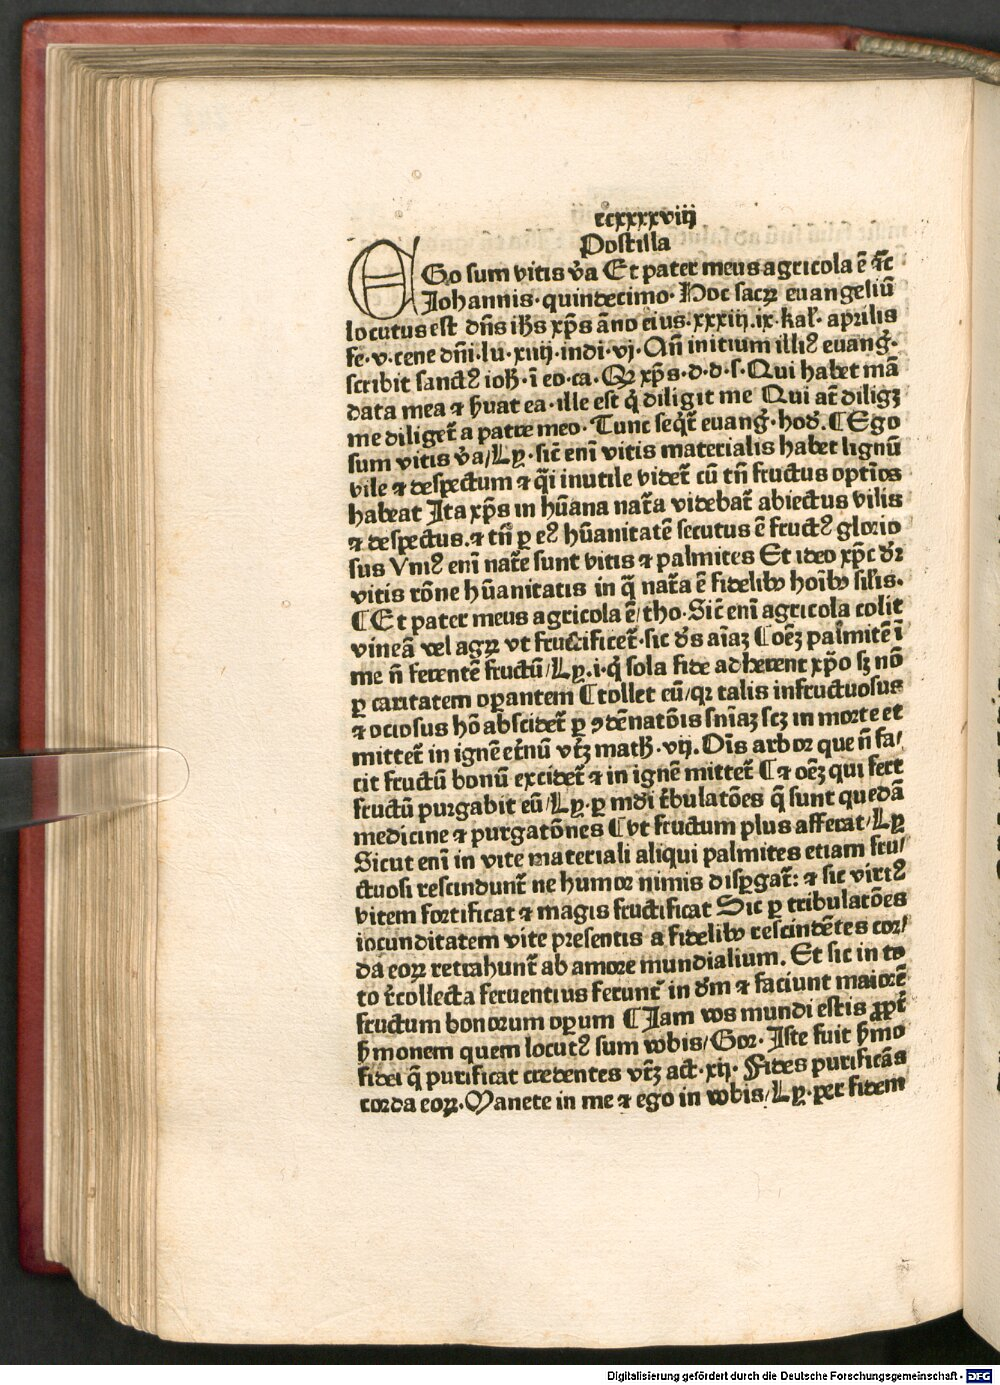 ccxxxxviij
Postilla
EGo sum vitis v̓a Et pater meus agricola ē ⁊c̄
Johannis · quindecimo · Hoc sacꝝ euangeliū
locutus est dn̄s ih̄s xp̄s āno eius · xxxiij . ix · kal̓ · aprilis
fe · v · cene dn̄i · lu · xiiij · indi · vj · An̄ initium illiꝰ euang̓ ·
scribit sanctꝰ ioh̄ · ī eo · ca · Qꝛ xp̄s · d · d · s · Qui habet mā
data mea ⁊ h̓uat ea · ille est q̓ diligit me Qui at̄ diligꝫ
me diliget̄ a patre meo · Tunc seq̓t̄ euang̓ · hod̓ . ¶ Ego
sum vitis v̓a / Lẏ · sic̄ enī vitis materialis habet lignū
vile ⁊ despectum ⁊ q̄i inutile videt̄ cū tn̄ fructus optīos
habeat Ita xp̄s in hūana nat̄a videbat̄ abiectus vilis
⁊ despectus . ⁊ tn̄ ꝑ eꝰ hūanitatē secutus ē fructꝰ glorio
sus Vniꝰ enī nat̄e sunt vitis ⁊ palmites Et ideo xp̄c d̓r
vitis rōne hūanitatis in q̄ nat̄a ē fidelibꝫ hoībꝫ sil̓is ·
¶ Et pater meus agricola ē / tho · Sic̄ enī agricola colit
vineā vel agꝝ vt fructificet̄ · sic d̓s aīaꝫ ¶ oēꝫ palmitē ī
me n̄ ferentē fructū / Lẏ . i · q̓ sola fide adherent xp̄o sꝫ nō
ꝑ caritatem oꝑantem ¶ tollet eū / qꝛ talis infructuosus
⁊ ociosus hō abscidet̄ ꝑ ꝯdēnatōis sn̄iaꝫ scꝫ in morte et
mittet̄ in ignē et̓nū vt̓ꝫ math̄ · vij . Oīs arbor que n̄ fa/
cit fructū bonū excidet̄ ⁊ in ignē mittet̄ ¶ ⁊ oēꝫ qui fert
fructū purgabit eū / Lẏ · ꝑ mūdi t̓bulatōes q̄ sunt quedā
medicine ⁊ purgatōnes ¶ vt fructum plus afferat / Lẏ
Sicut enī in vite materiali aliqui palmites etiam fru/
ctuosi rescindunt̄ ne humor nimis disꝑgat̄ : ⁊ sic virtꝰ
vitem fortificat ⁊ magis fructificat Sic ꝑ tribulatōes
iocunditatem vite presentis a fidelibꝫ rescindētes cor/
da eoꝝ retrahunt̄ ab amore mundialium . Et sic in to
to t̓collecta feruentius ferunt̄ in d̓m ⁊ faciunt maiorē
fructum bonorum oꝑum ¶ Iam vos mundi estis ꝓpt̓
h̓monem quem locutꝰ sum vobis / Gor · Iste fuit h̓mo
fidei q̄ purificat credentes vt̓ꝫ act · xij · Fides purificās
corda eoꝝ . Manete in me ⁊ ego in vobis / Lẏ · per fidem
Digitalisierung gefördert durch die Deutsche Forschungsgemeinschaft - DFG